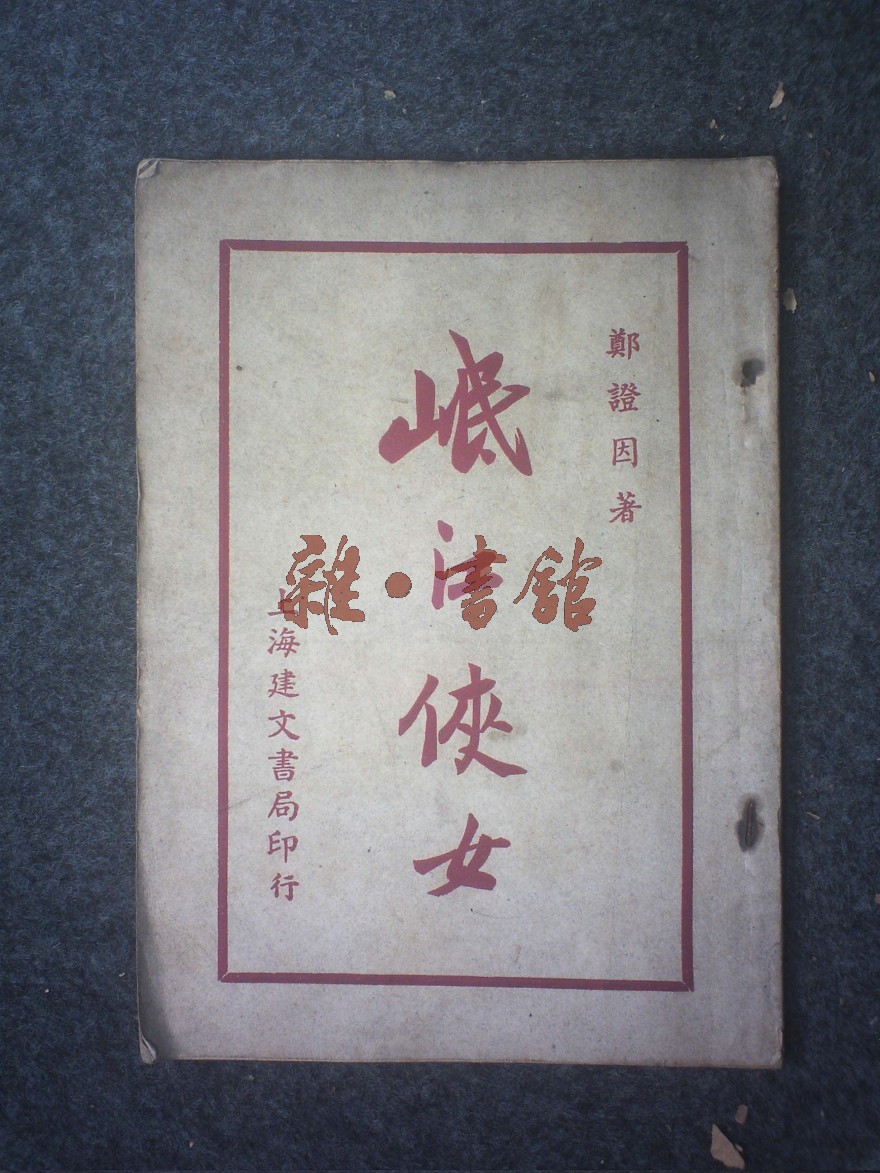 鄭證因著
岷江俠女
上海建文書局印行
雜·書館